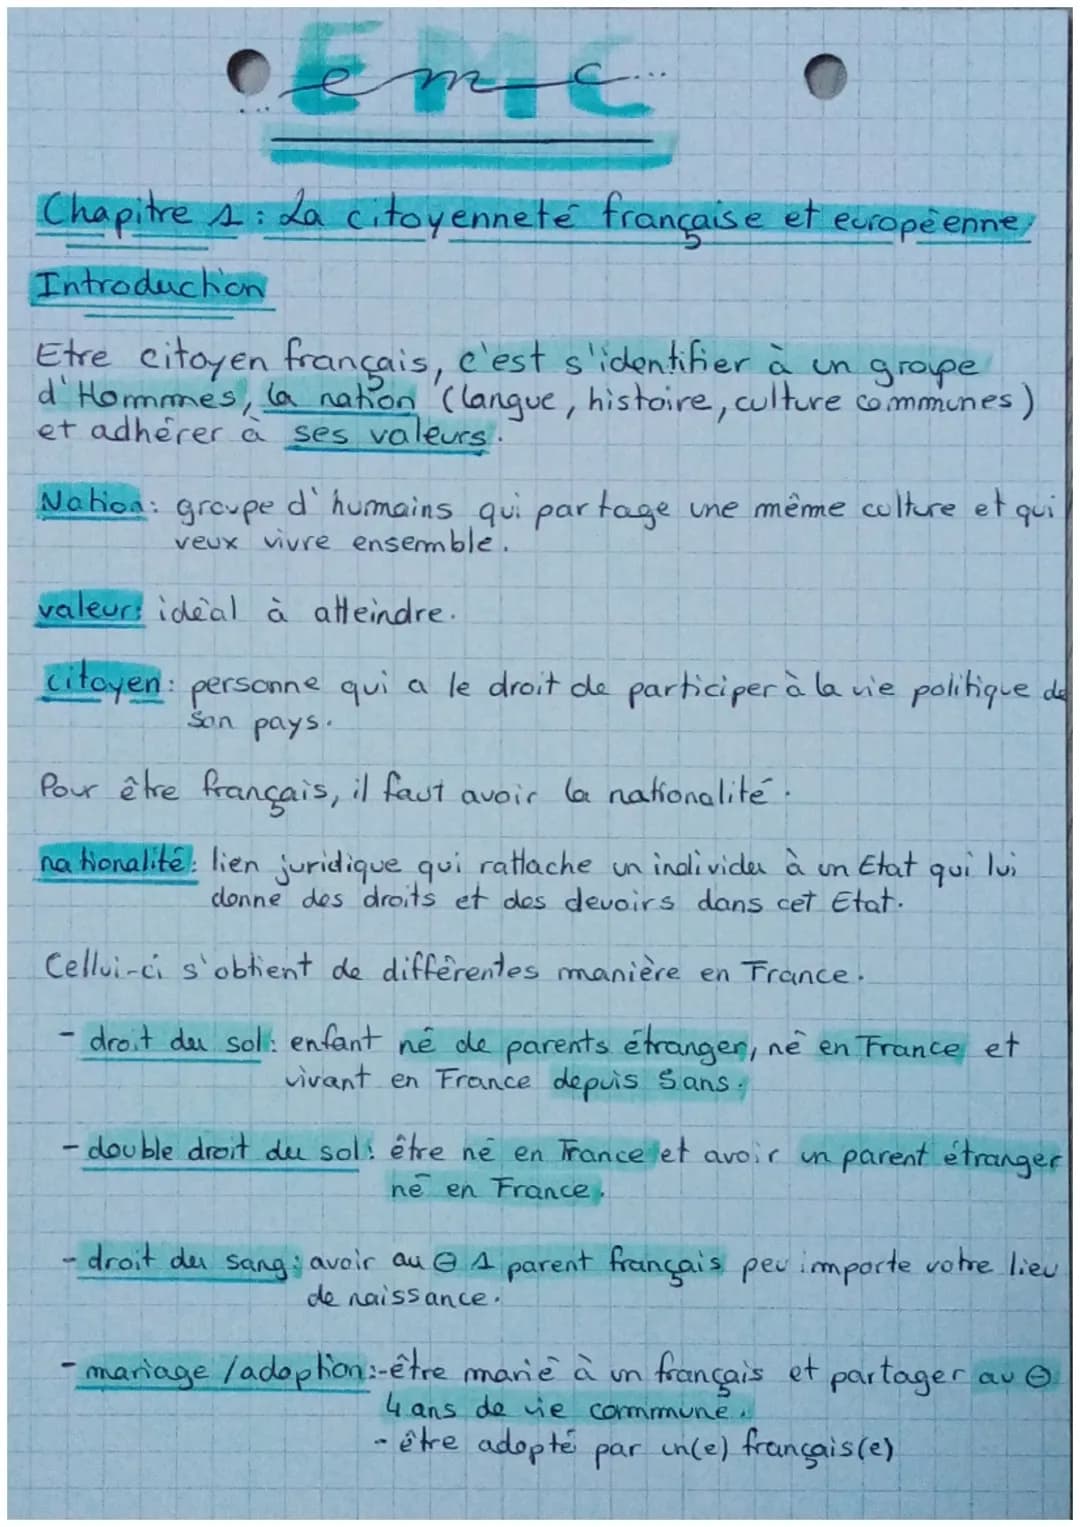 EMC
...emc...
Chapitre 1 : La citoyenneté française et européenne
Introduction
Etre citoyen français, c'est s'identifier à un groupe
d'Hommes, la nation (langue, histoire, culture communes)
et adhérer à ses valeurs.
Nation: groupe d'humains qui partage une même culture et qui
veux vivre ensemble.
valeur: idéal à atteindre.
citoyen: personne qui a le droit de participer à la vie politique de
son pays.
Pour être français, il faut avoir la nationalité.
nationalité: lien juridique qui rattache un individu à un Etat qui lui
donne des droits et des devoirs dans cet Etat.
Cellui-ci s'obtient de différentes manière en France.
- droit du sol: enfant né de parents étranger, né en France et
vivant en France depuis 5 ans.
- double droit du sol: être né en France et avoir un parent étranger
né en France.
- droit du sang: avoir au ⊖ 1 parent français peu importe votre lieu
de naissance.
- mariage /adoption:-être marié à un français et partager au ⊖
4 ans de vie commune.
- être adopté par un(e) français(e)